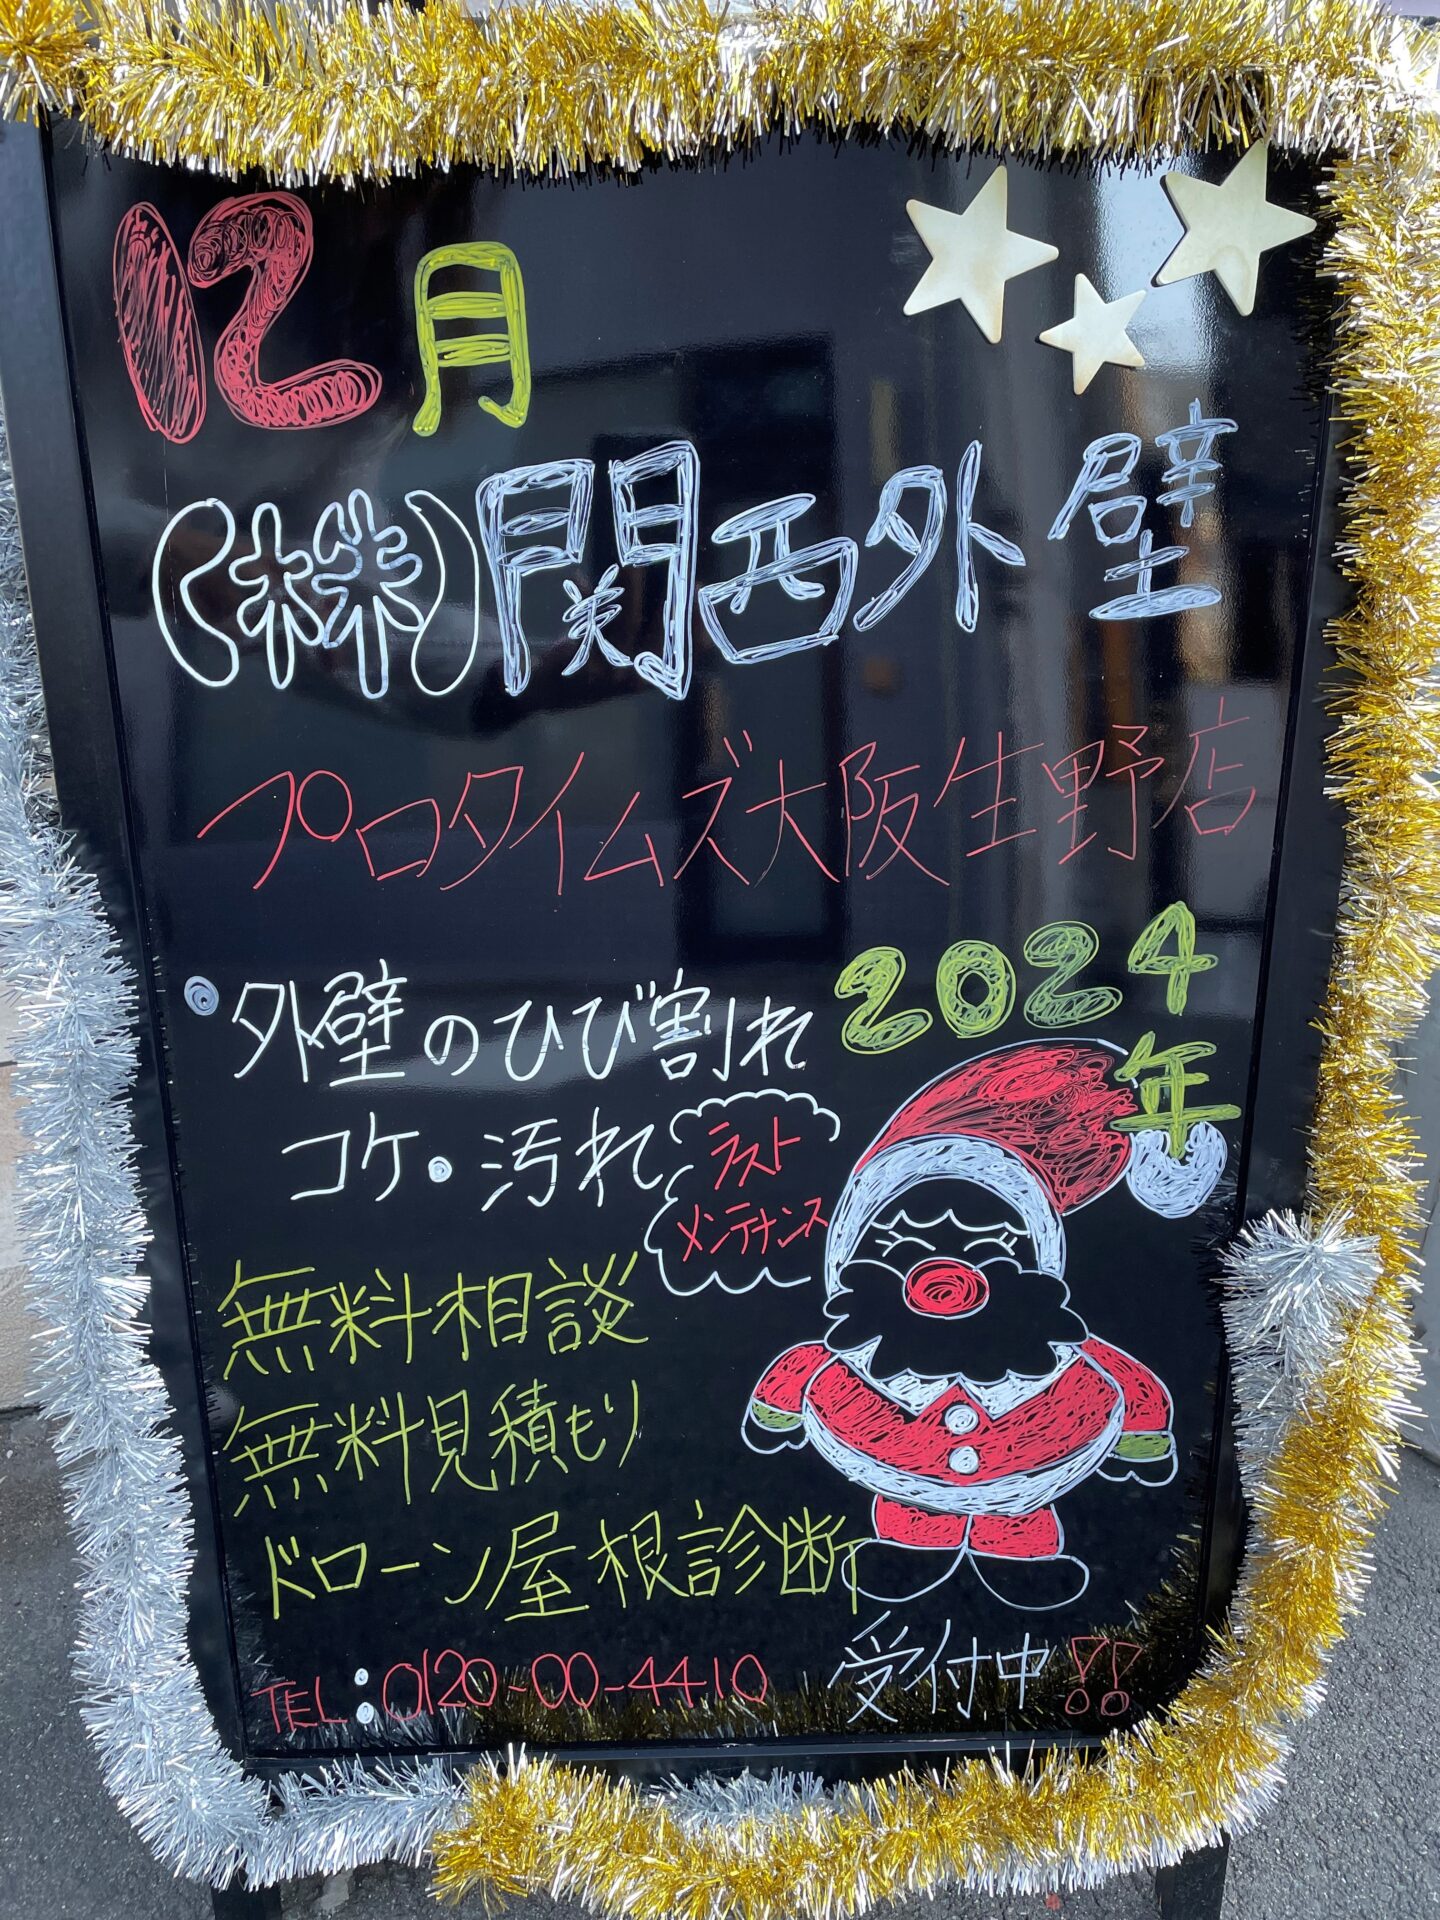 12月
(株)関西外壁
プロタイムズ大阪生野店
2024年
外壁のひび割れ
コケ・汚れ
ラスト
メンテナンス
無料相談
無料見積もり
ドローン屋根診断
TEL:0120-00-4410 受付中!!